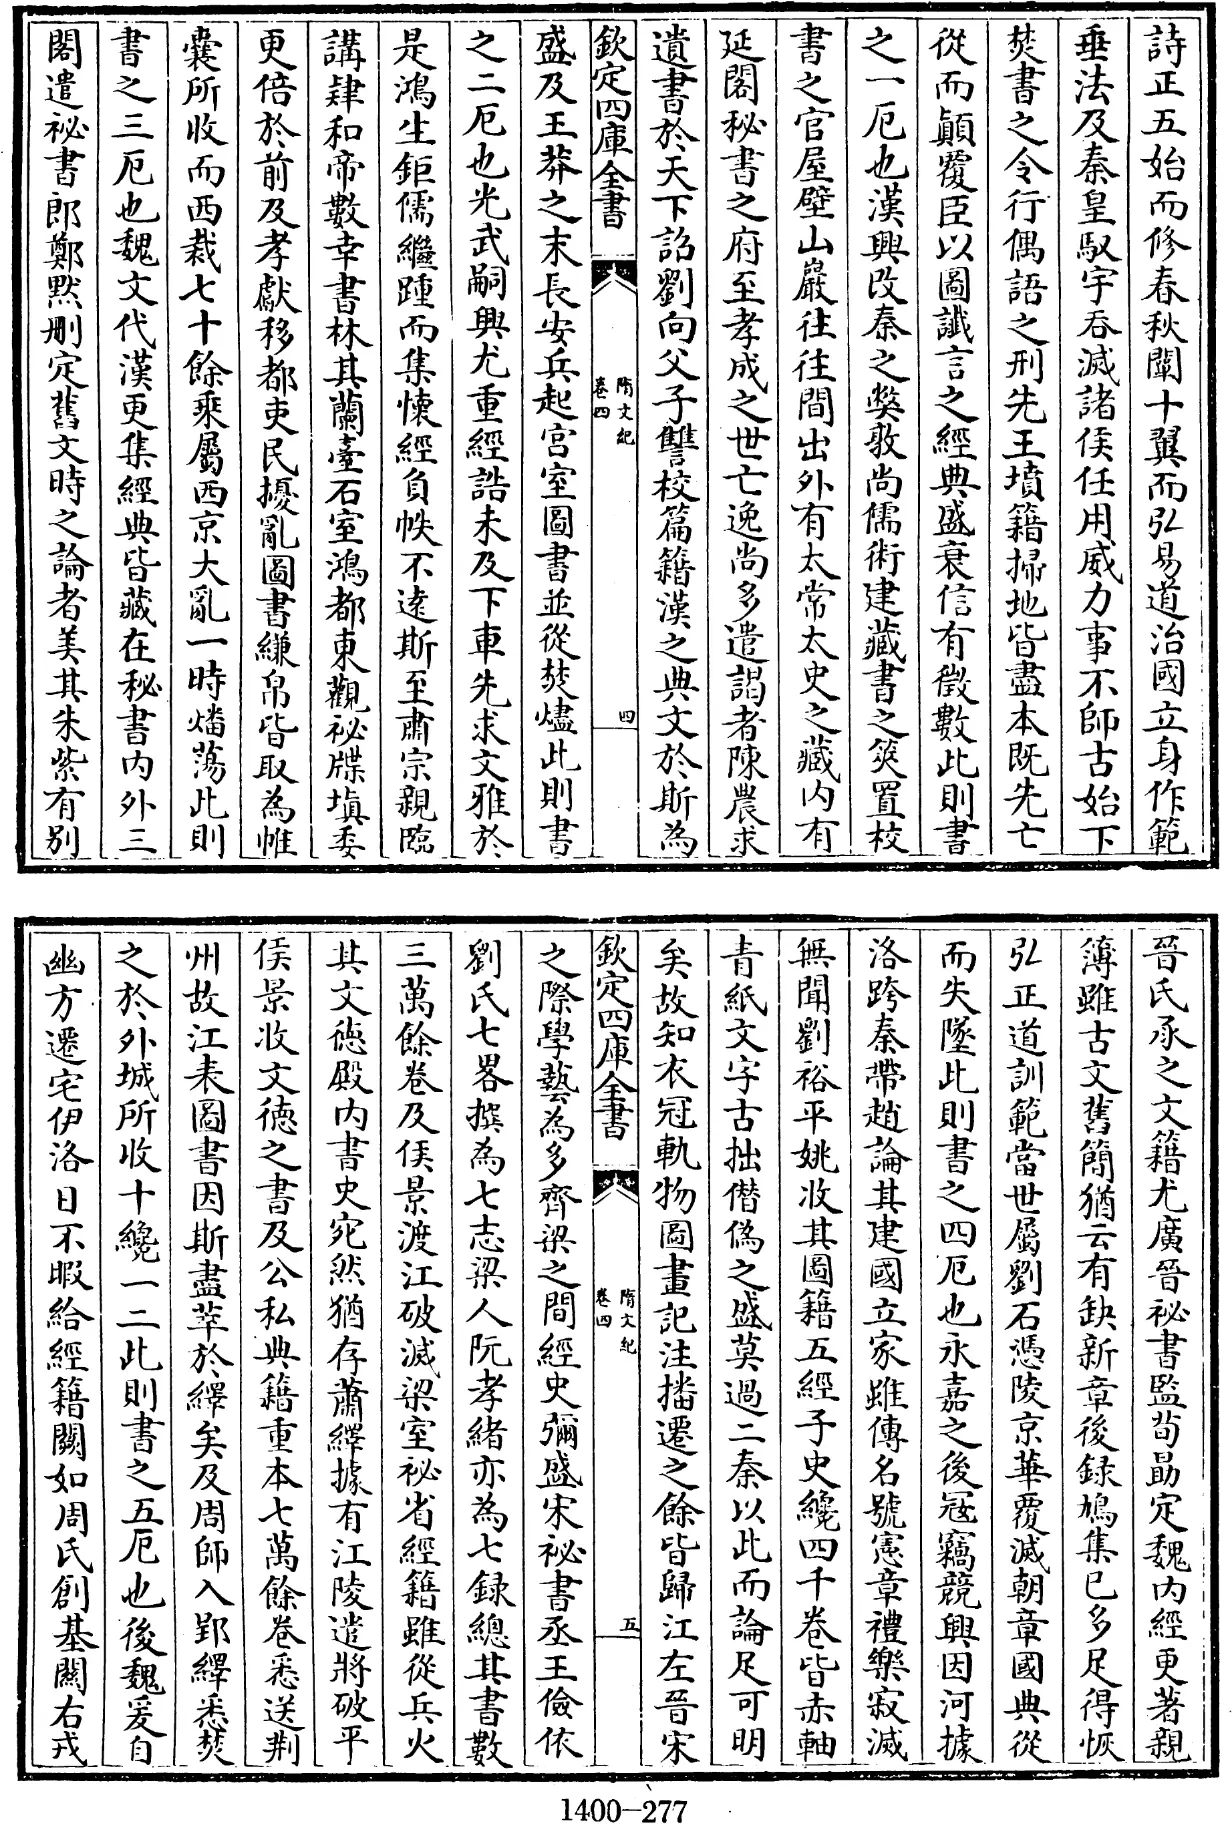 詩正五始而修春秋闡十翼而弘易道治國立身作範
垂法及秦皇馭宇吞滅諸侯任用威力事不師古始下
焚書之令行偶語之刑先王墳籍掃地皆盡本既先亡
從而顚覆臣以圖讖言之經典盛衰信有徵數此則書
之一厄也漢興改秦之弊敦尚儒術建藏書之筴置校
書之官屋壁山巖往往間出外有太常太史之藏内有
延閣秘書之府至孝成之世亡逸尚多遣謁者陳農求
遺書於天下詔劉向父子讐校篇籍漢之典文於斯為
欽定四庫全書
隋文紀
卷四
四
盛及王莽之末長安兵起宫室圖書並從焚燼此則書
之二厄也光武嗣興尤重經誥未及下車先求文雅於
是鴻生鉅儒繼踵而集懷經負帙不遠斯至肅宗親臨
講肄和帝數幸書林其蘭臺石室鴻都東觀祕牒塡委
更倍於前及孝獻移都吏民擾亂圖書縑帛皆取為帷
囊所收而西裁七十餘乘屬西京大亂一時燔蕩此則
書之三厄也魏文代漢更集經典皆藏在秘書内外三
閣遣祕書郎鄭黙刪定舊文時之論者美其朱紫有别
晉氏承之文籍尤廣晉祕書監荀勗定魏内經更著親
簿雖古文舊簡猶云有缺新章後録鳩集已多足得恢
弘正道訓範當世屬劉石憑陵京華覆滅朝章國典從
而失墜此則書之四厄也永嘉之後冦竊競興因河據
洛跨秦帶趙論其建國立家雖傳名號憲章禮樂寂滅
無聞劉裕平姚收其圖籍五經子史纔四千卷皆赤軸
青紙文字古拙僭偽之盛莫過二秦以此而論足可明
矣故知衣冠軌物圖畫記注播遷之餘皆歸江左晉宋
欽定四庫全書
隋文紀
卷四
五
之際學藝為多齊梁之間經史彌盛宋祕書丞王儉依
劉氏七畧撰為七志梁人阮孝緒亦為七録總其書數
三萬餘卷及侯景渡江破滅梁室祕省經籍雖從兵火
其文德殿内書史宛然猶存蕭繹據有江陵遣將破平
侯景收文德之書及公私典籍重本七萬餘卷悉送荆
州故江表圖書因斯盡萃於繹矣及周師入郢繹悉焚
之於外城所收十纔一二此則書之五厄也後魏爰自
幽方遷宅伊洛日不暇給經籍闕如周氏創基關右戎
1400-277